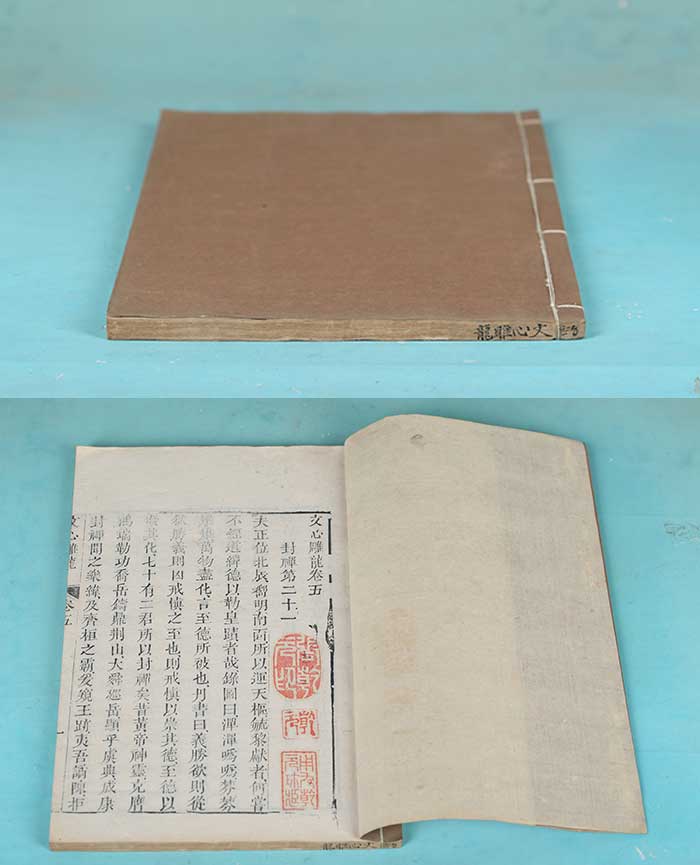 文心雕龍
文心雕龍卷五
封禪第二十一
夫正位北辰嚮明南面所以運天樞毓黎獻者何嘗
不經道緯德以勒皇蹟者哉錄圖曰潬潬噅噅棼棼
雉雉萬物盡化言至德所被也丹書曰義勝欲則從
欲勝義則凶戒慎之至也則戒慎以崇其德至德以
凝其化七十有二君所以封禪矣昔黃帝神靈克膺
鴻瑞勒功喬岳鑄鼎荊山大舜巡岳顯乎虞典成康
封禪聞之樂緯及齊桓之霸爰窺王跡夷吾譎陳拒
文心雕龍 卷五
文心雕龍